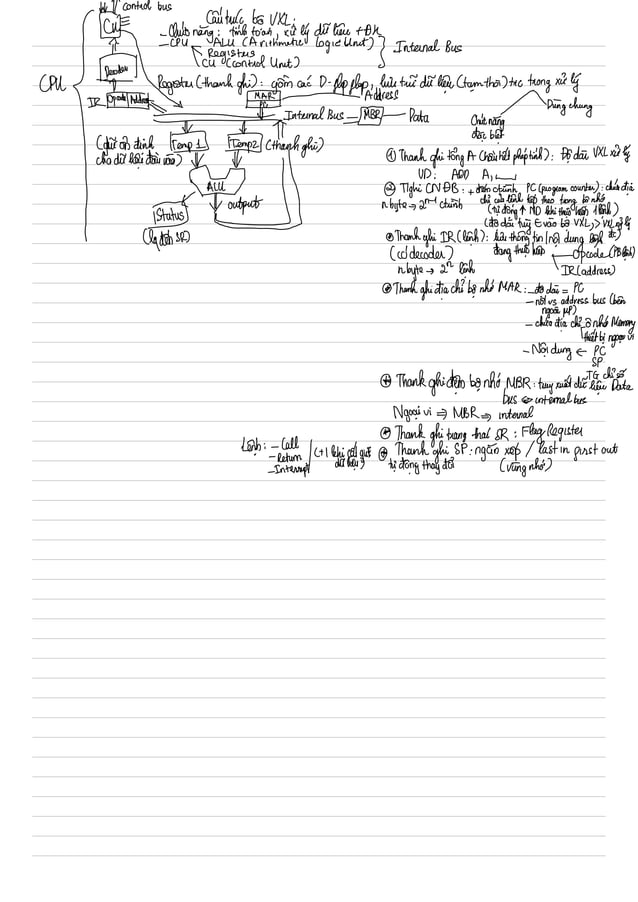 control bus
Cấu trúc bộ VXL:
CU
- Chức năng: tính toán, xử lý dữ liệu + ĐK
- CPU ALU (Arithmetic Logic Unit)
Registers
CU (Control Unit)
Internal Bus
CPU
Decoder
Register (thanh ghi): gồm các D-flip flop, lưu trữ dữ liệu (tạm thời) trong xử lý
IR Opcode Address
MAR
PC
Address
Internal Bus MBR Data
Dùng chung
Chức năng đặc biệt
(giữ ổn định cho dữ liệu đầu vào)
Temp 1
Temp 2 (thanh ghi)
ALU
Status
output
① Thanh ghi tổng A (chứa kết phép tính): Độ dài VXL xử lý
VD: ADD A,
② PC (program counter): chứa địa chỉ của lệnh tiếp theo trong bộ nhớ
(tự động ↑ ND khi thực hiện 1 lệnh)
Thanh ghi IR (lệnh): lưu thông tin/nội dung lệnh đang thực hiện
Opcode
IR (address)
(c/ decoder)
n byte → 2ⁿ lệnh
Thanh ghi địa chỉ bộ nhớ MAR: - độ dài = PC
- nối vs address bus (bên ngoài μP)
- chứa địa chỉ ô nhớ Memory
thiết bị ngoại vi
- Nội dung ← PC
SP
TG chỉ số
Thanh ghi đệm bộ nhớ MBR: truy xuất dữ liệu Data
bus ⇔ internal bus
Ngoại vi ⇒ MBR ⇒ internal
Thanh ghi trạng thái SR: Flag Register
Lệnh: - Call
- Return
- Interrupt
Thanh ghi SP: ngăn xếp / last in first out
tự động thay đổi (vùng nhớ)